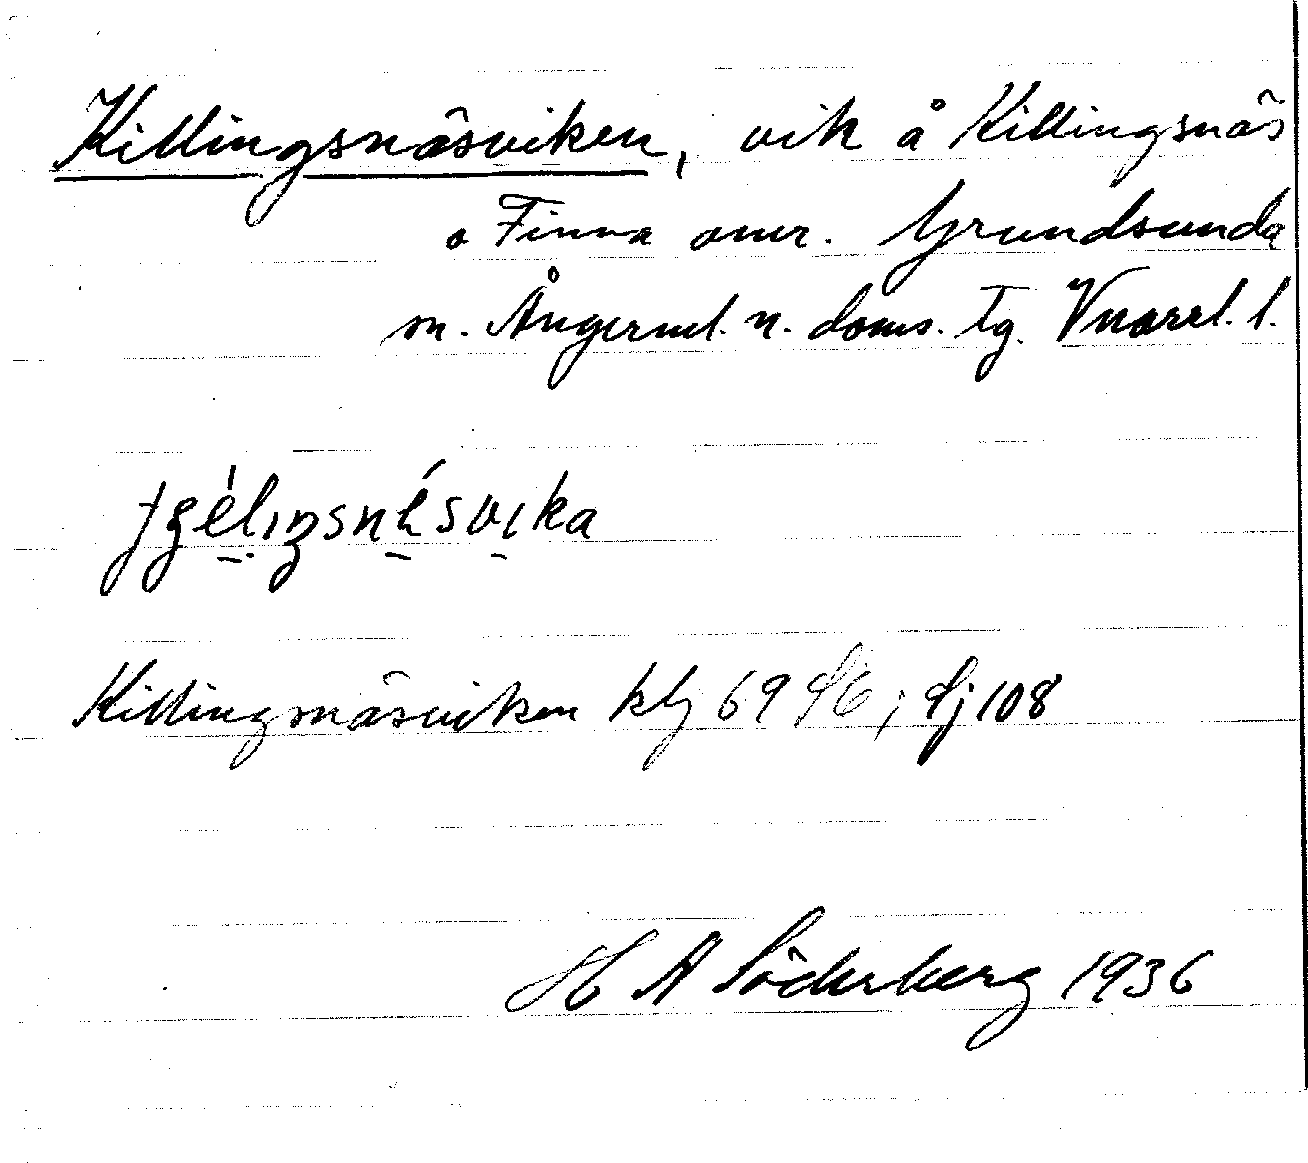 Killingsnäsviken, vik å Killingsnäs
o Finna omr. Grundsunda
sn. Ångerml. n. doms. tg. Vnorrl. l.
Killingsnäsviken klj 69 ; Sj 108
H A Söderberg 1936